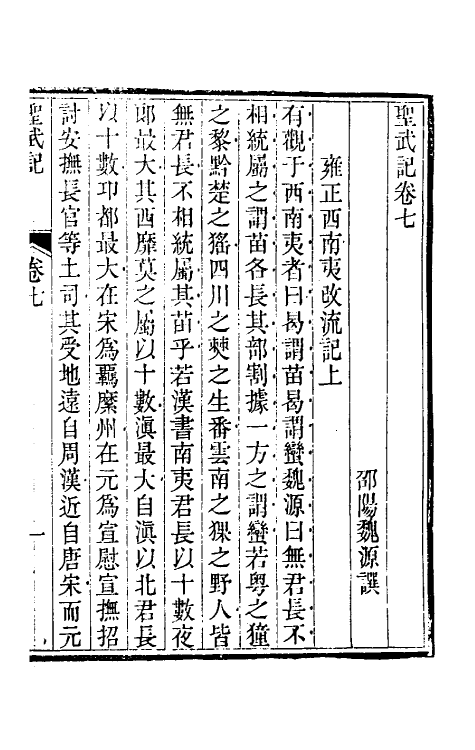 聖武記卷七
邵陽魏源譔
雍正西南夷改流記上
有觀于西南夷者曰曷謂苗曷謂蠻魏源曰無君長不
相統屬之謂苗各長其部割據一方之謂蠻若粵之獞
之黎黔楚之猺四川之僰之生番雲南之猓之野人皆
無君長不相統屬其苗乎若漢書南夷君長以十數夜
郎最大其西靡莫之屬以十數滇最大自滇以北君長
以十數邛都最大在宋爲羈縻州在元爲宣慰宣撫招
討安撫長官等土司其受地遠自周漢近自唐宋而元
聖武記
卷七
一